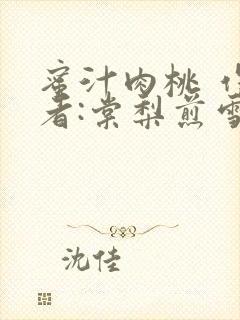 蜜汁肉桃 作
者:棠梨煎雪
沈佳